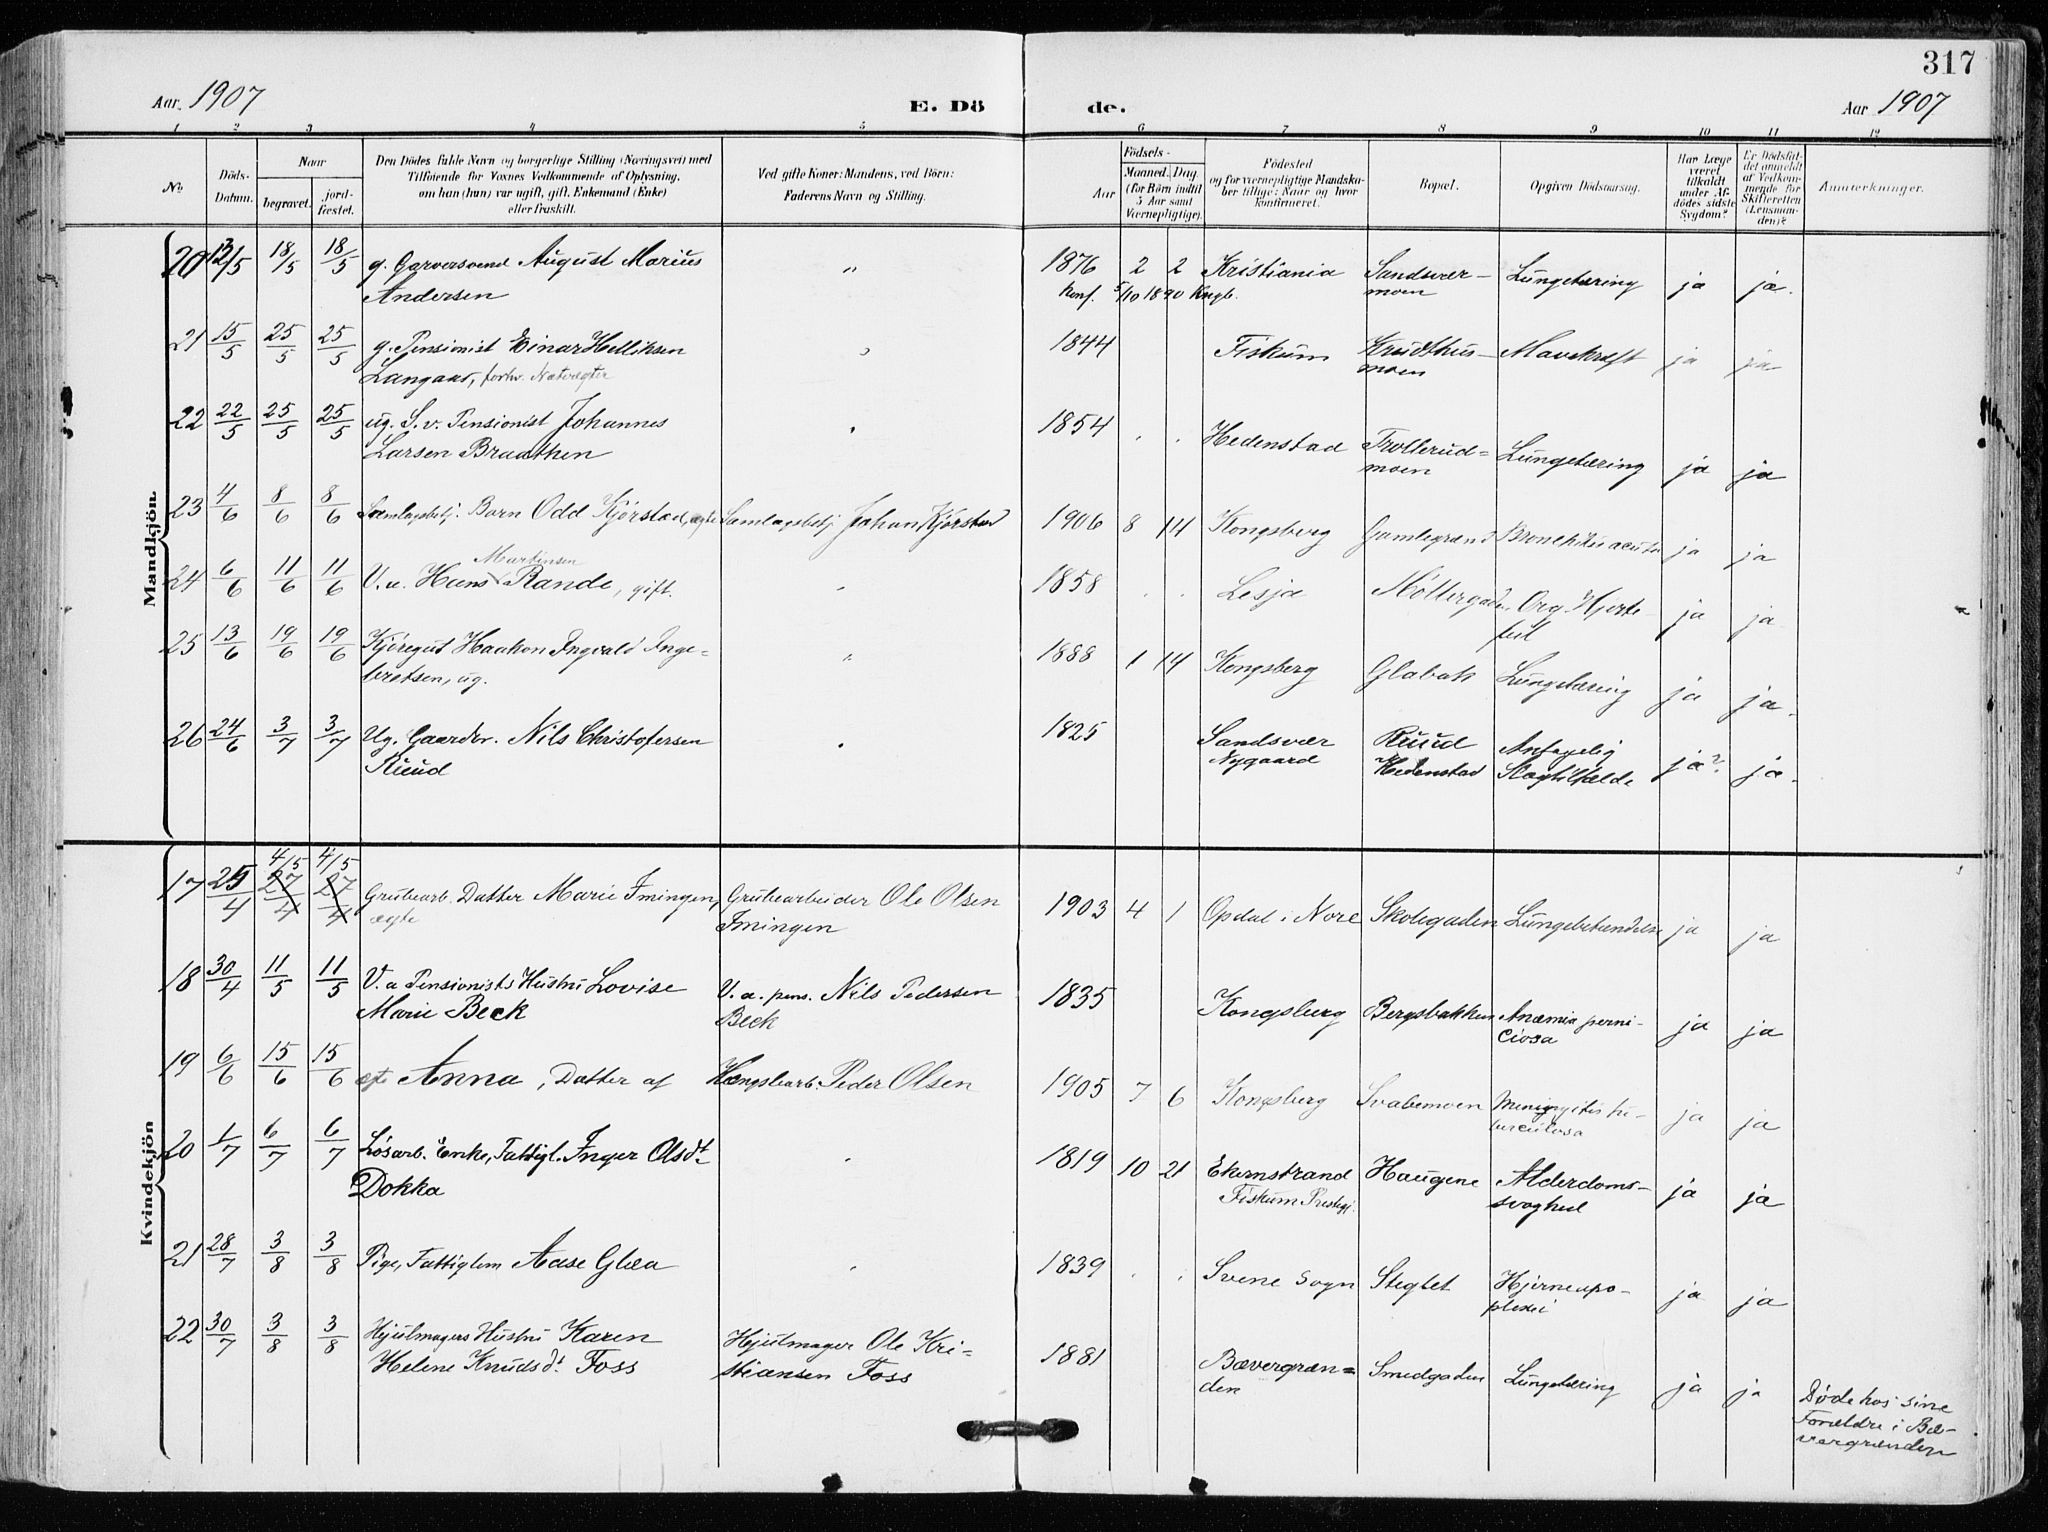 317
Aar 1907 E. Dö de. Aar 1907
1 2 3 4 5 6 7 8 9 10 11 12
No.
Döds-
Datum.
Naar
begravet.
jord-
fæstet.
Den Dödes fulde Navn og borgerlige Stilling (Næringsvei) med
Tilföiende for Voxnes Vedkommende af Oplysning,
om han (hun) var ugift, gift, Enkemand (Enke)
eller fraskilt.
Ved gifte Koner: Mandens, ved Börn:
Faderens Navn og Stilling.
Födsels-
Aar
Maaned. Dag.
(for Börn indtil
5 Aar samt
Værnepligtige).
Födested
og for værnepligtige Mandska-
ber tillige: Naar og hvor
konfirmeret.
Bopæl.
Opgiven Dödsaarsag.
Har Læge
været
tilkaldt
under Af-
dödes sidste
Sygdom?
Er Dödsfal-
det anmeldt
af Vedkom-
mende for
Skifteretten
(Lensman-
den)?
Anmærkninger.
Mandkjön.
20 12/5 18/5 18/5 g. Garversvend August Marius 1876 2 2 Kristiania Sandsvær- Lungetæring ja ja.
Andersen Konf. 5/10 1890 Kngb. moen
21 15/5 25/5 25/5 g. Pensionist Einar Helliksen 1844 Fiskum Krudthus- Mavekræft ja ja
Langaas, forhv. moen
22 22/5 25/5 25/5 ug. S. v. Pensionist Johannes 1854 . . Hedenstad Trollerud- Lungetæring ja ja
Larsen Braathen moen
23 4/6 8/6 8/6 Samlagsbetj. Barn Odd Kjörstad, ægte Samlagsbetj. Johan Kjörstad 1906 8 14 Kongsberg Gamlegrænd Bronchitis acuta ja ja
Martinsen
24 6/6 11/6 11/6 V. a. Hans Rande, gift. 1858 . . Lesja Möllergaden Org. Hjerte- ja ja
feil
25 13/6 19/6 19/6 Kjöregut Haakon Ingvald Inge- 1888 1 14 Kongsberg Glabak Lungetæring ja ja.
bretsen, ug.
26 24/6 3/7 3/7 Ug. Gaardbr. Nils Christofersen 1825 Sandsvær Ruud Antagelig ja? ja.
Ruud Nygaard Hedenstad Slagtilfælde
Kvindekjön
4/5 4/5
17 25/4 27/4 27/4 Grubearb. Datter Marie Imingen, Grubearbeider Ole Olsen 1903 4 1 Opdal i Nore Skolegaden Lungebetændelse ja ja
ægte Imingen
18 30/4 11/5 11/5 V. a Pensionists Hustru Lovise V. a. pens. Nils Pedersen 1835 Kongsberg Bergsbakken Anæmia perni- ja ja
Marie Beck Beck ciosa
19 6/6 15/6 15/6 Anna, Datter af Peder Olsen 1905 7 6 Kongsberg Svabemoen Meningitis tu- ja ja
berculosa
20 1/7 6/7 6/7 Lösarb. Enke, Fattigl. Inger Olsdt 1819 10 21 Ekernstrand Haugene Alderdoms- ja ja
Dokka Fiskum Prestegj. svaghed
21 28/7 3/8 3/8 Pige, Fattiglem Aase Glea 1839 . . Svene Sogn Steglet Hjerneapo- ja ja
plexi
22 30/7 3/8 3/8 Hjulmagers Hustru Karen Hjulmager Ole Kri- 1881 Bævergræn- Smedgaden Lungetæring ja ja
Helene Knudsdt Foss stiansen Foss den
Döde hos sine
Forældre i Bæ-
vergrænden